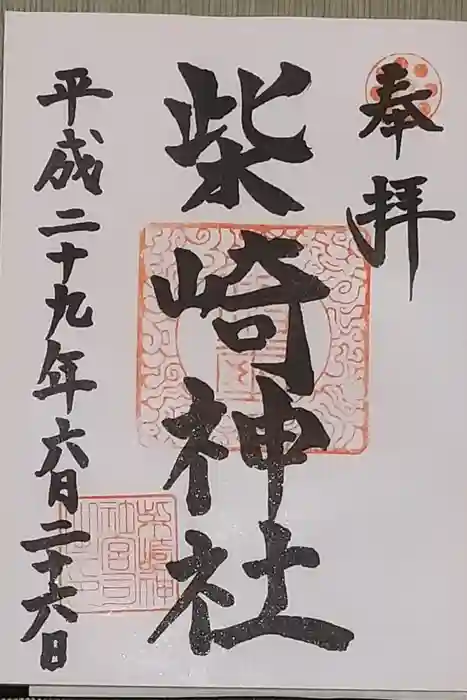 奉拝
柴崎神社
平成二十九年六月二十六日